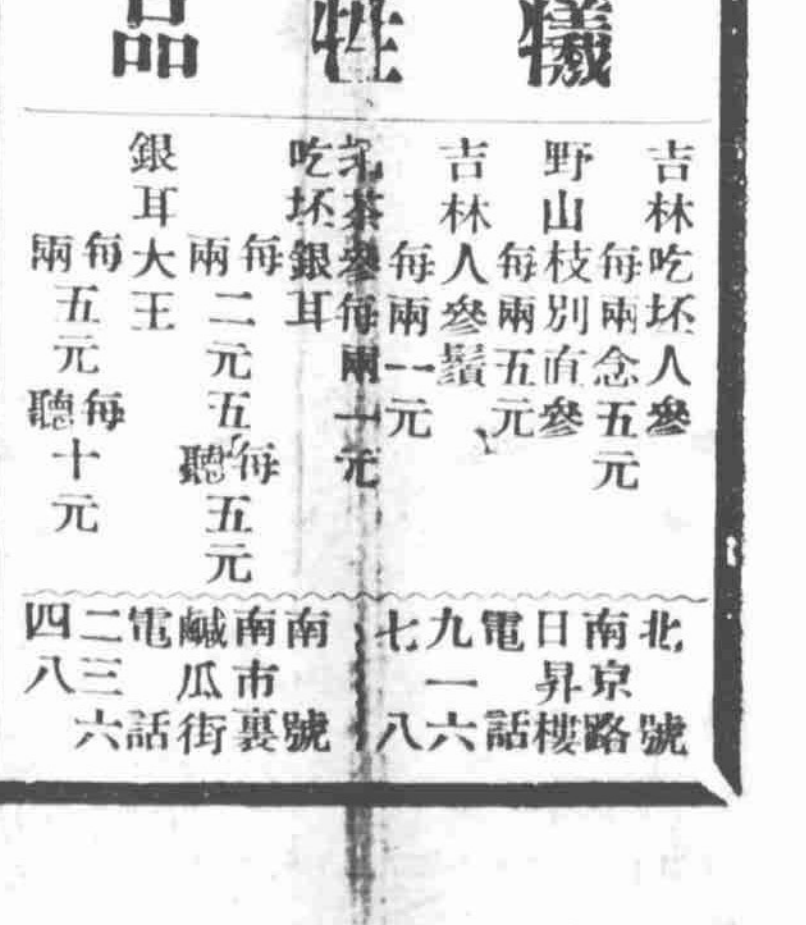 犧牲品
吉林吃坯人參
每兩念五元
野山枝別直參
每兩五元
吉林人參鬚
每兩一元
茶參每兩一元
吃坯銀耳
每兩二元五
每聽五元
銀耳大王
每兩五元
每聽十元
北號
南京路
日昇樓
電話
九一六
七八
南號
南市裏
鹹瓜街
電話
二三六
四八